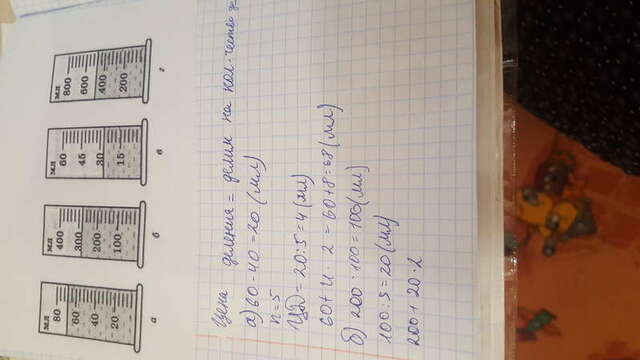 мл
80
60
40
20
а
мл
400
300
200
100
б
мл
60
45
30
15
в
мл
800
600
400
200
г
Цена деления = делим на кол-чество
а) 60-40=20 (мл)
n=5
ЦД = 20:5=4 (мл)
60+4·2=60+8=68(мл)
б) 200-100=100(мл)
100:5=20(мл)
200+20·2